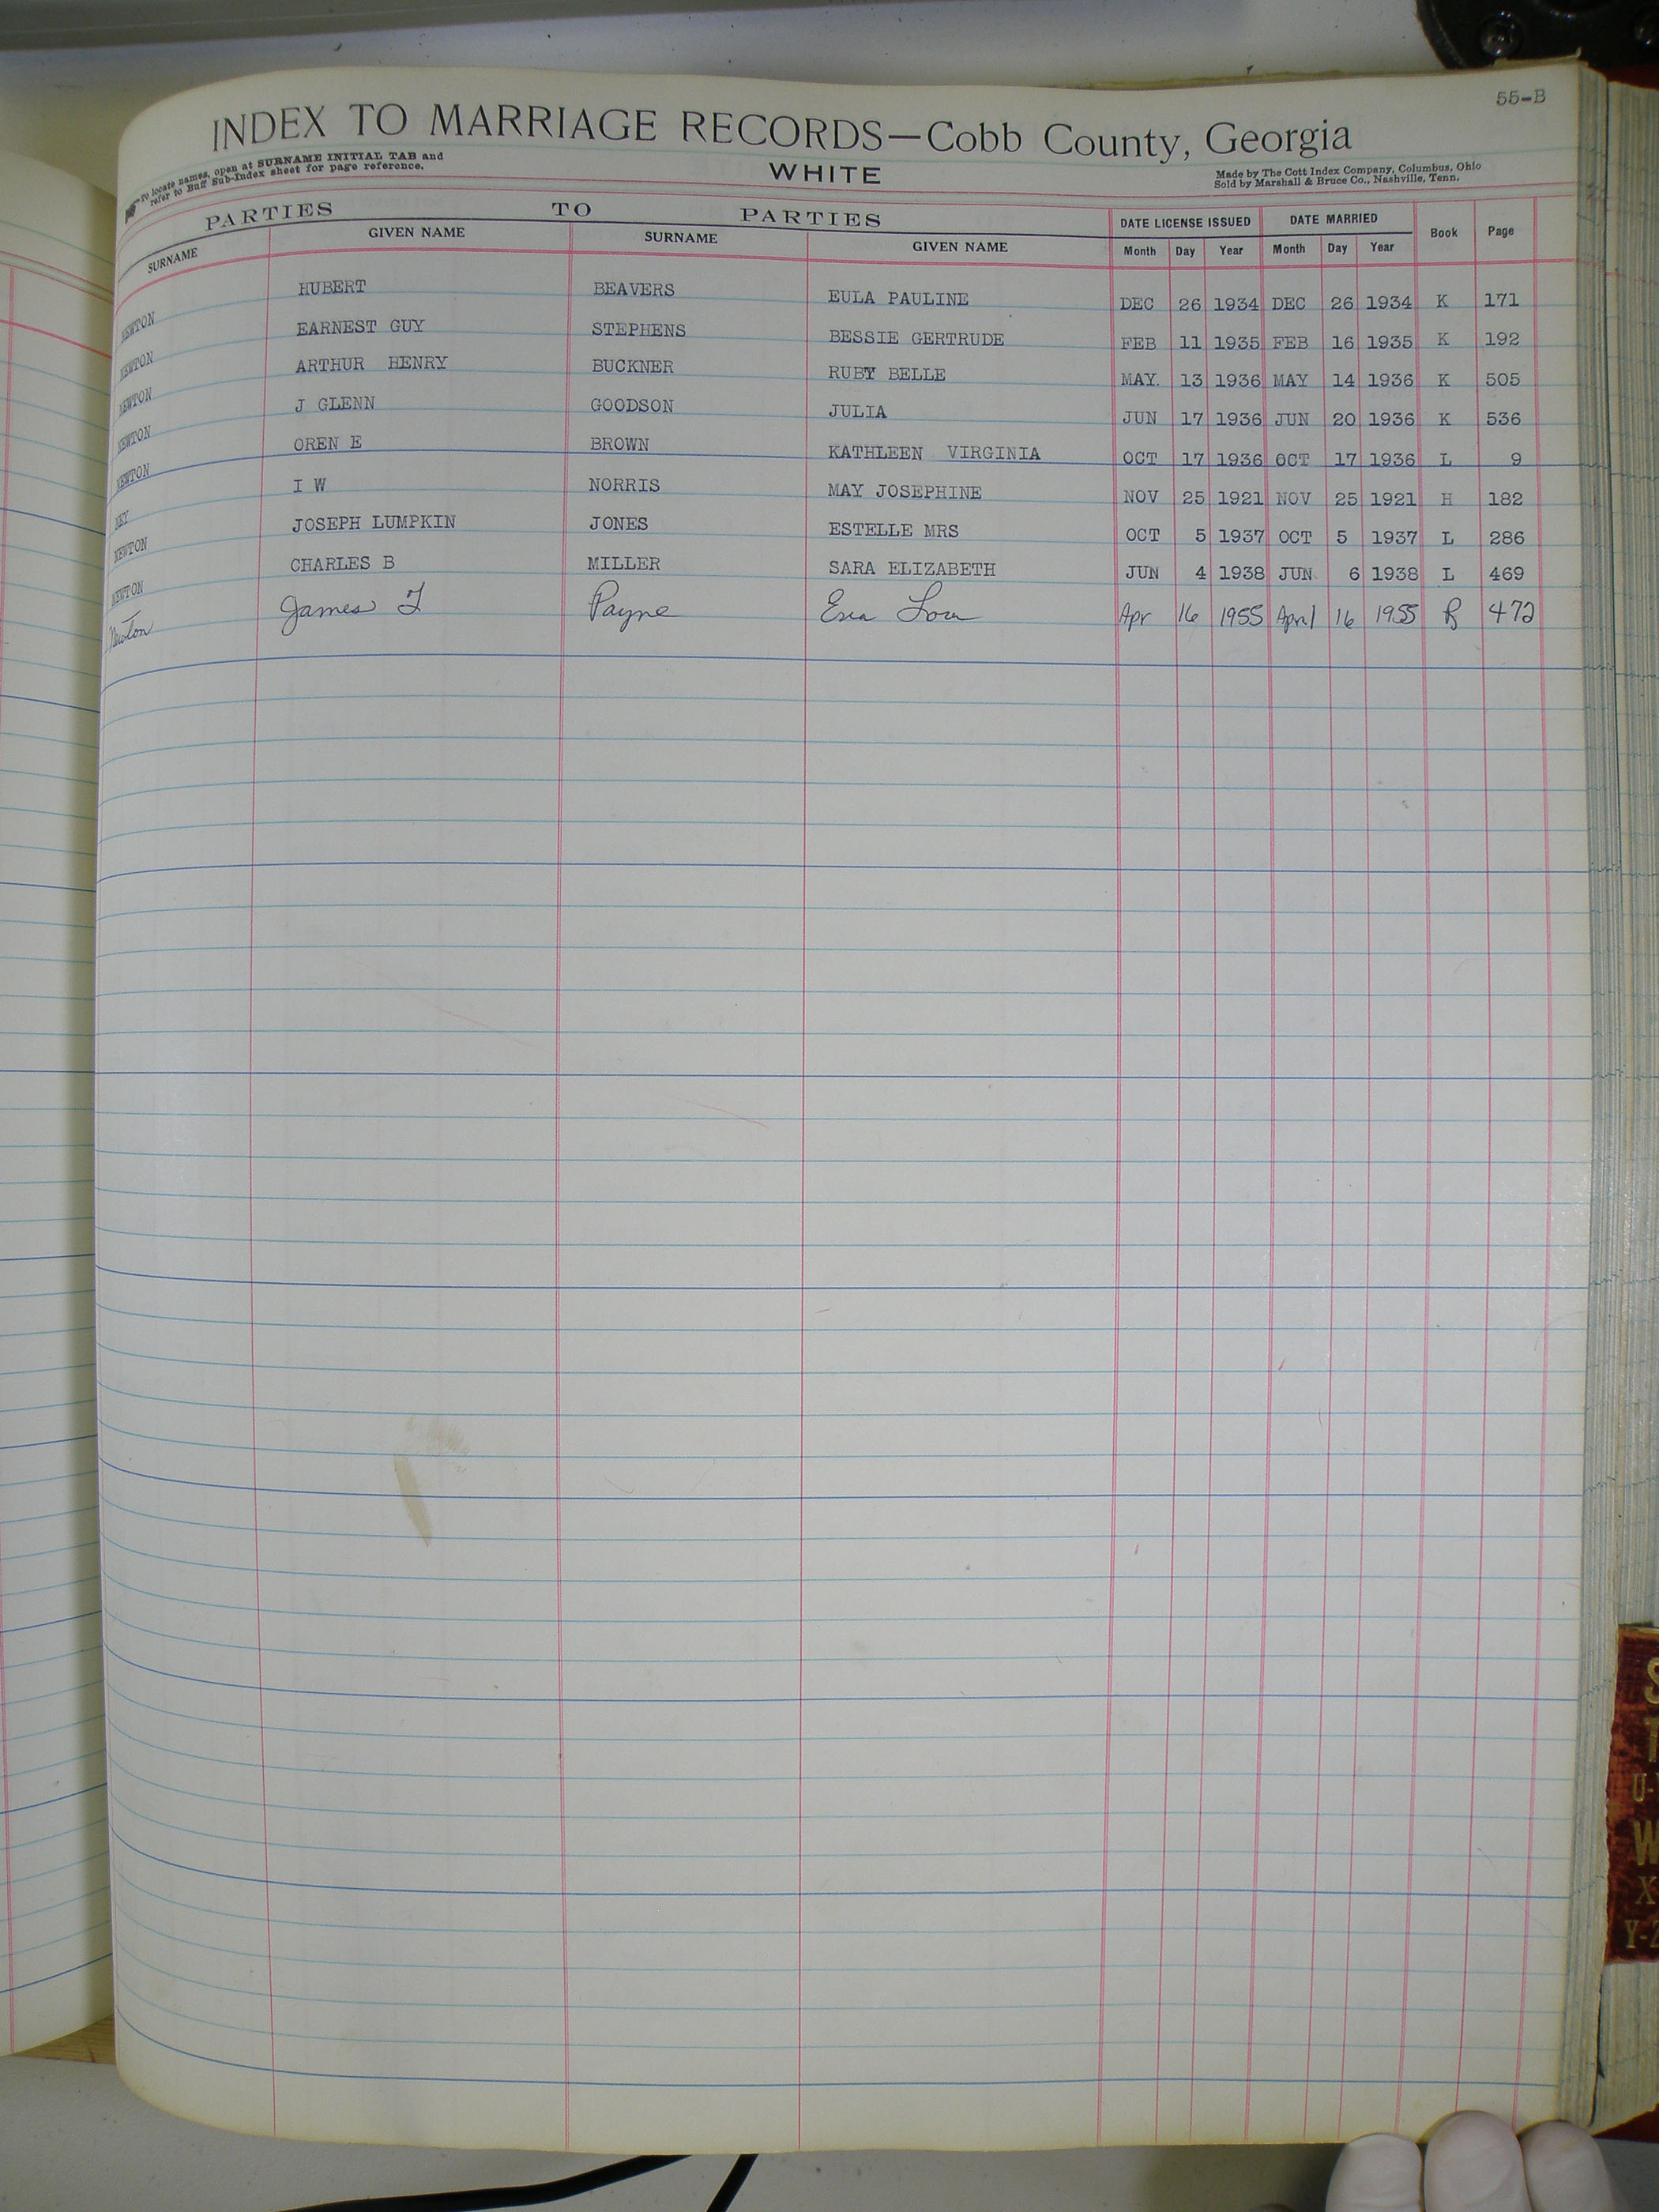 55-B
INDEX TO MARRIAGE RECORDS—Cobb County, Georgia
To locate names, open at SURNAME INITIAL TAB and
refer to Buff Sub-Index sheet for page reference.
WHITE
Made by The Cott Index Company, Columbus, Ohio
Sold by Marshall & Bruce Co., Nashville, Tenn.
PARTIES TO PARTIES DATE LICENSE ISSUED DATE MARRIED
SURNAME GIVEN NAME SURNAME GIVEN NAME Month Day Year Month Day Year Book Page
NEWTON HUBERT BEAVERS EULA PAULINE DEC 26 1934 DEC 26 1934 K 171
NEWTON EARNEST GUY STEPHENS BESSIE GERTRUDE FEB 11 1935 FEB 16 1935 K 192
NEWTON ARTHUR HENRY BUCKNER RUBY BELLE MAY. 13 1936 MAY 14 1936 K 505
NEWTON J GLENN GOODSON JULIA JUN 17 1936 JUN 20 1936 K 536
NEWTON OREN E BROWN KATHLEEN VIRGINIA OCT 17 1936 OCT 17 1936 L 9
NEY I W NORRIS MAY JOSEPHINE NOV 25 1921 NOV 25 1921 H 182
NEWTON JOSEPH LUMPKIN JONES ESTELLE MRS OCT 5 1937 OCT 5 1937 L 286
NEWTON CHARLES B MILLER SARA ELIZABETH JUN 4 1938 JUN 6 1938 L 469
Newton James Payne Apr 16 1955 April 16 1955 R 472
S
T
U-
W
X
Y-Z